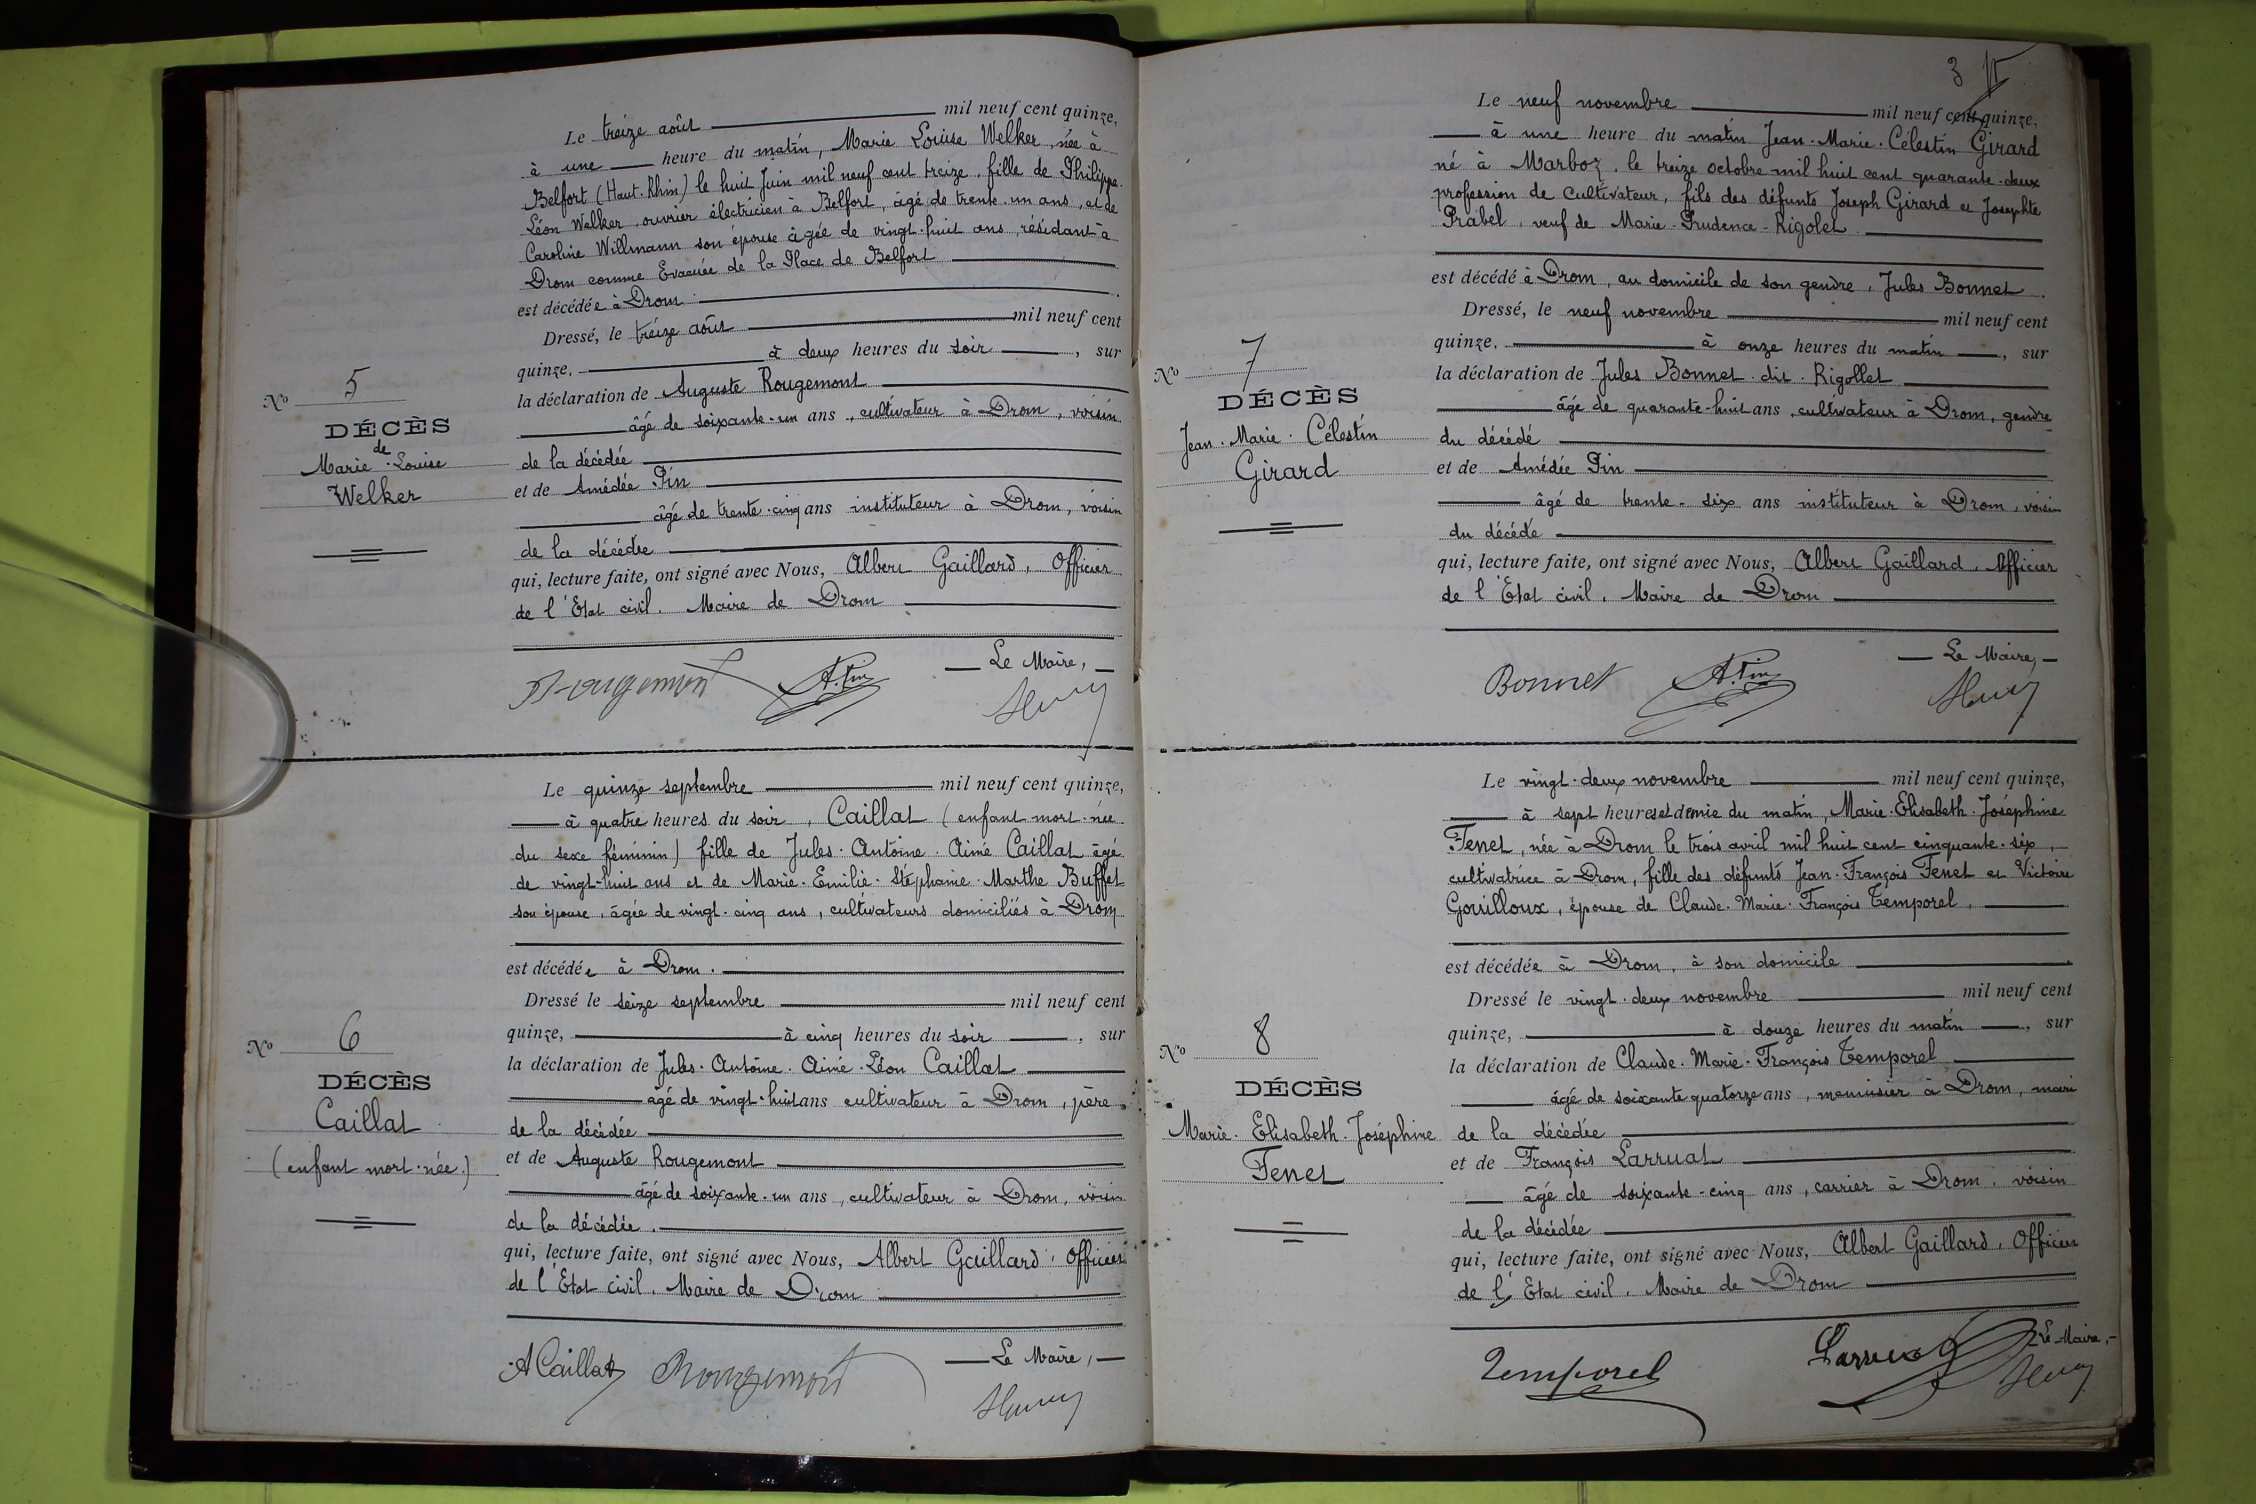 Le treize août mil neuf cent quinze,
à une heure du matin, Marie Louise Welker, née à
Belfort (Haut-Rhin) le huit Juin mil neuf cent treize, fille de Philippe
Léon Welker, ouvrier électricien à Belfort, âgé de trente-un ans, et de
Caroline Willmann son épouse âgée de vingt-huit ans, résidant à
Drom comme Evacuée de la Place de Belfort
est décédée à Drom.
Dressé, le treize août mil neuf cent
quinze, à deux heures du soir, sur
la déclaration de Auguste Rougemont
âgé de soixante-un ans, cultivateur à Drom, voisin
de la décédée
et de Amédée Pin
âgé de trente-cinq ans instituteur à Drom, voisin
de la décédée
qui, lecture faite, ont signé avec Nous, Albert Gaillard, Officier
de l'Etat civil. Maire de Drom
No 5
DÉCÈS
de
Marie-Louise
Welker
Le Maire,
Rougemont A. Pin
Le quinze septembre mil neuf cent quinze,
à quatre heures du soir, Caillat (enfant mort-née
du sexe féminin) fille de Jules-Antoine-Aimé Caillat âgé
de vingt-huit ans et de Marie-Emilie-Stéphanie-Marthe Buffet
son épouse, âgée de vingt-cinq ans, cultivateurs domiciliés à Drom
est décédée à Drom.
Dressé le seize septembre mil neuf cent
quinze, à cinq heures du soir, sur
la déclaration de Jules-Antoine-Aimé-Léon Caillat
âgé de vingt-huit ans cultivateur à Drom, père
de la décédée
et de Auguste Rougemont
âgé de soixante-un ans, cultivateur à Drom, voisin
de la décédée.
qui, lecture faite, ont signé avec Nous, Albert Gaillard, Officier
de l'Etat civil. Maire de Drom
No 6
DÉCÈS
Caillat
(enfant mort-née.)
Le Maire,
A Caillat Rougemont
3
Le neuf novembre mil neuf cent quinze,
à une heure du matin Jean-Marie-Célestin Girard
né à Marboz, le treize octobre mil huit cent quarante-deux
profession de cultivateur, fils des défunts Joseph Girard et Josephte
Prabel, veuf de Marie-Prudence-Rigolet
est décédé à Drom, au domicile de son gendre, Jules Bonnet.
Dressé, le neuf novembre mil neuf cent
quinze, à onze heures du matin, sur
la déclaration de Jules Bonnet dit Rigollet
âgé de quarante-huit ans, cultivateur à Drom, gendre
du décédé
et de Amédée Pin
âgé de trente-six ans instituteur à Drom, voisin
du décédé
qui, lecture faite, ont signé avec Nous, Albert Gaillard, Officier
de l'Etat civil. Maire de Drom
No 7
DÉCÈS
Jean-Marie-Célestin
Girard
Le Maire,
Bonnet A. Pin
Le vingt-deux novembre mil neuf cent quinze,
à sept heures et demie du matin, Marie-Elisabeth-Joséphine
Fenet, née à Drom le trois avril mil huit cent cinquante-six,
cultivatrice à Drom, fille des défunts Jean-François Fenet et Victoire
Gouilloux, épouse de Claude-Marie-François Temporel,
est décédée à Drom, à son domicile
Dressé le vingt-deux novembre mil neuf cent
quinze, à douze heures du matin, sur
la déclaration de Claude-Marie-François Temporel
âgé de soixante quatorze ans, menuisier à Drom, mari
de la décédée
et de François Larruat
âgé de soixante-cinq ans, carrier à Drom, voisin
de la décédée
qui, lecture faite, ont signé avec Nous, Albert Gaillard, Officier
de l'Etat civil. Maire de Drom
No 8
DÉCÈS
Marie-Elisabeth-Joséphine
Fenet
Le Maire,
Temporel Larruat